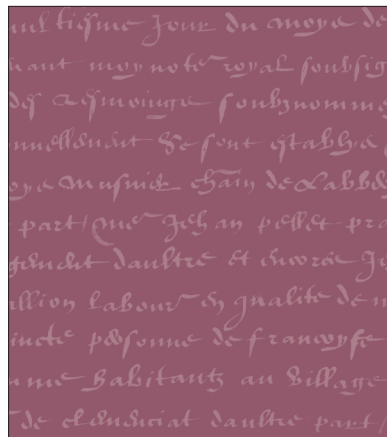 tiesme Jour du moys de
moy note royal soubsig
des tesmoings soubznomme
nnellement Se sont establye
Musnier de Labbe
part / me Jehan pellet pra
gement daultre et encores Je
labour en qualite de m
personne de francoyse
habitants au village
de daultre part /